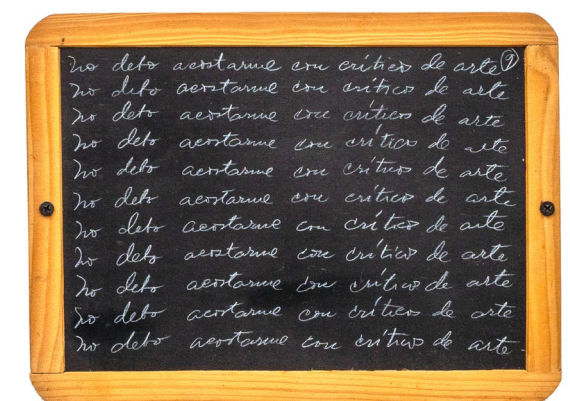 no debo acostarme con críticos de arte ①
no debo acostarme con críticos de arte
no debo acostarme con críticos de arte
no debo acostarme con críticos de arte
no debo acostarme con críticos de arte
no debo acostarme con críticos de arte
no debo acostarme con críticos de arte
no debo acostarme con críticos de arte
no debo acostarme con críticos de arte
no debo acostarme con críticos de arte
no debo acostarme con críticos de arte